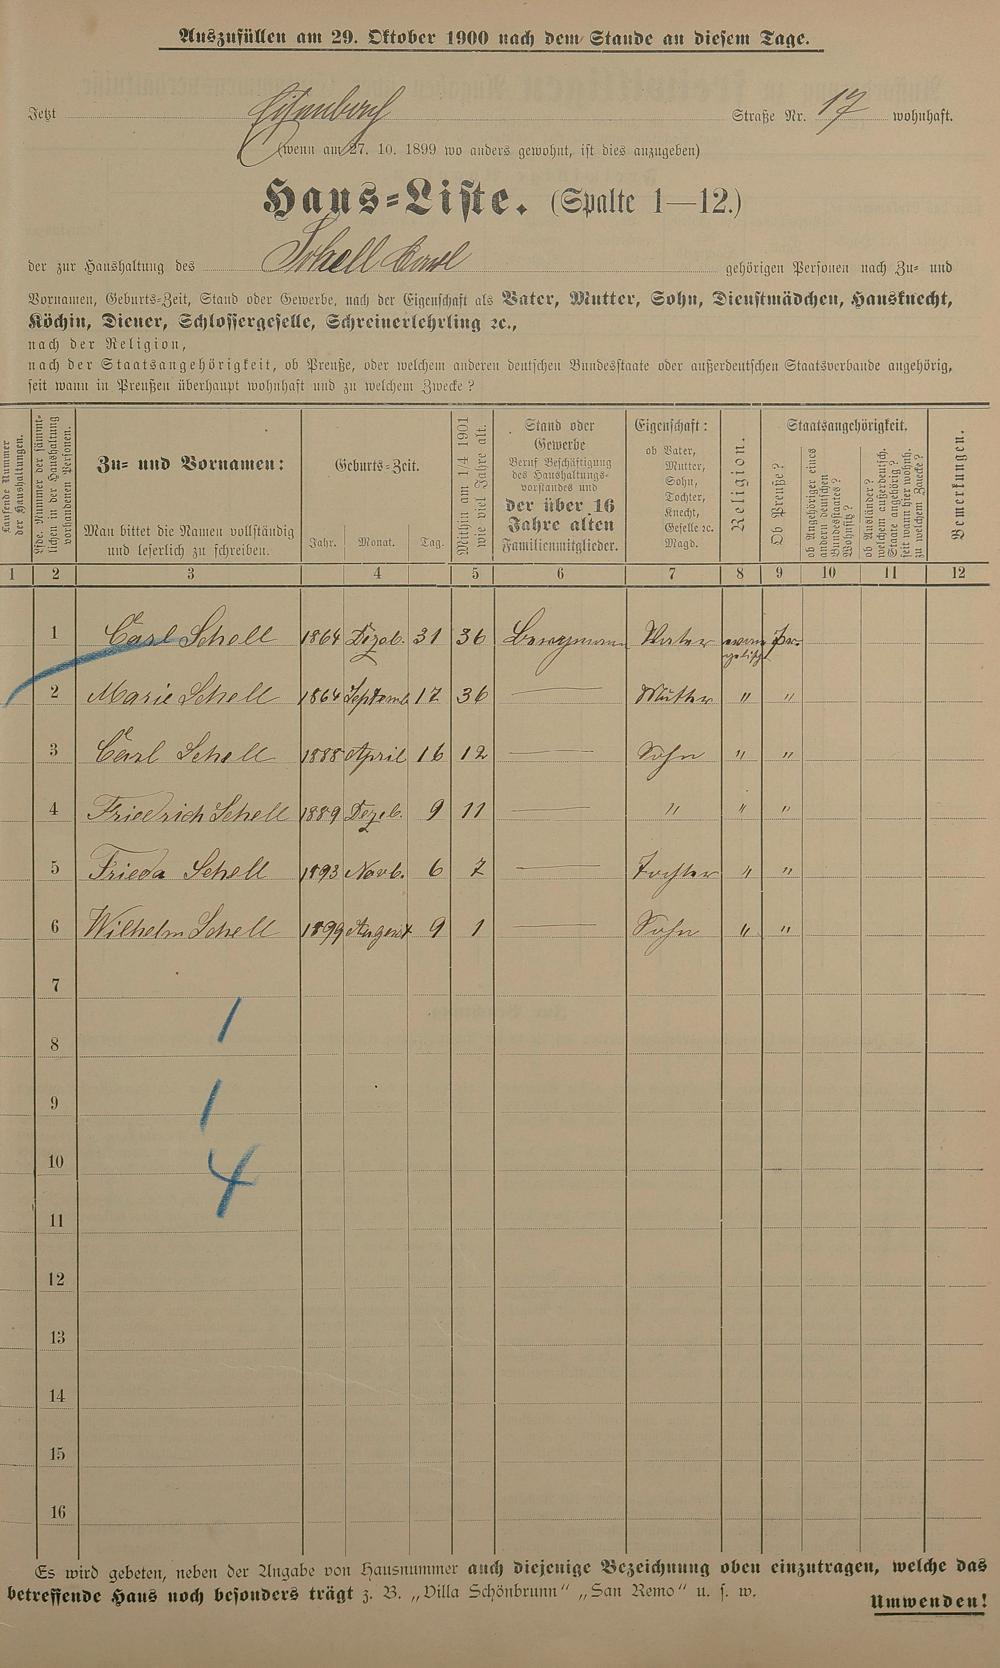 Auszufüllen am 29. Oktober 1900 nach dem Stande an diesem Tage.
Jetzt Straße Nr. 17 wohnhaft.
(wenn am 27. 10. 1899 wo anders gewohnt, ist dies anzugeben)
Haus-Liste. (Spalte 1—12.)
der zur Haushaltung des Schell Carl gehörigen Personen nach Zu- und
Vornamen, Geburts-Zeit, Stand oder Gewerbe, nach der Eigenschaft als Vater, Mutter, Sohn, Dienstmädchen, Hausknecht,
Köchin, Diener, Schlossergeselle, Schreinerlehrling ꝛc.,
nach der Religion,
nach der Staatsangehörigkeit, ob Preuße, oder welchem anderen deutschen Bundesstaate oder außerdeutschen Staatsverbande angehörig,
seit wann in Preußen überhaupt wohnhaft und zu welchem Zwecke?
Laufende Nummer
der Haushaltungen.
Lfde. Nummer der sämmt-
lichen in der Haushaltung
vorhandenen Personen.
Zu- und Vornamen:
Man bittet die Namen vollständig
und leserlich zu schreiben.
Geburts-Zeit.
Jahr. Monat. Tag.
Mithin am 1/4 1901
wie viel Jahre alt.
Stand oder
Gewerbe
Beruf Beschäftigung
des Haushaltungs-
vorstandes und
der über 16
Jahre alten
Familienmitglieder.
Eigenschaft:
ob Vater,
Mutter,
Sohn,
Tochter,
Knecht,
Geselle ꝛc.
Magd.
Religion.
Staatsangehörigkeit.
Ob Preuße?
ob Angehöriger eines
andern deutschen
Bundesstaates?
Wohnsitz?
ob Ausländer?
welchem außerdeutsch.
Staate angehörig?
seit wann hier wohnh.
zu welchem Zwecke?
Bemerkungen.
1 2 3 4 5 6 7 8 9 10 11 12
1 Carl Schell 1864 Dezeb. 31 36 Bergmann Vater evangelisch Pr.
2 Marie Schell 1864 Septemb 17 36 — Mutter " "
3 Carl Schell 1888 April 16 12 — Sohn " "
4 Friedrich Schell 1889 Dezeb. 9 11 — " " "
5 Frieda Schell 1893 Novb. 6 7 — Tochter " "
6 Wilhelm Schell 1899 August 9 1 — Sohn " "
7
1
8
9
1
10
4
11
12
13
14
15
16
Es wird gebeten, neben der Angabe von Hausnummer auch diejenige Bezeichnung oben einzutragen, welche das
betreffende Haus noch besonders trägt z. B. „Villa Schönbrunn“ „San Remo“ u. s. w.
Umwenden!